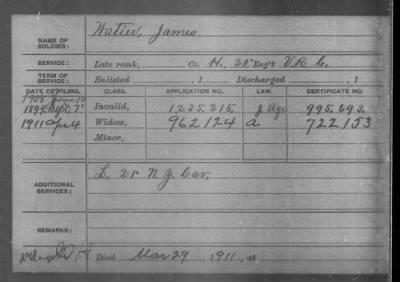 NAME OF SOLDIER: Watier, James
SERVICE: Late rank, Co. H, 20" Reg't V.R.C.
TERM OF SERVICE: Enlisted , 1 Discharged , 1
DATE OF FILING. CLASS. APPLICATION NO. LAW. CERTIFICATE NO.
1908 June 10
1899 Sept. 7 Invalid, 1235.215 J Age 995.693.
1911 Apr 4 Widow, 962124 a 722153
Minor,
ADDITIONAL SERVICES: L. 21 N.Y. Cav.
REMARKS:
Died Mar 29 , 1911, at